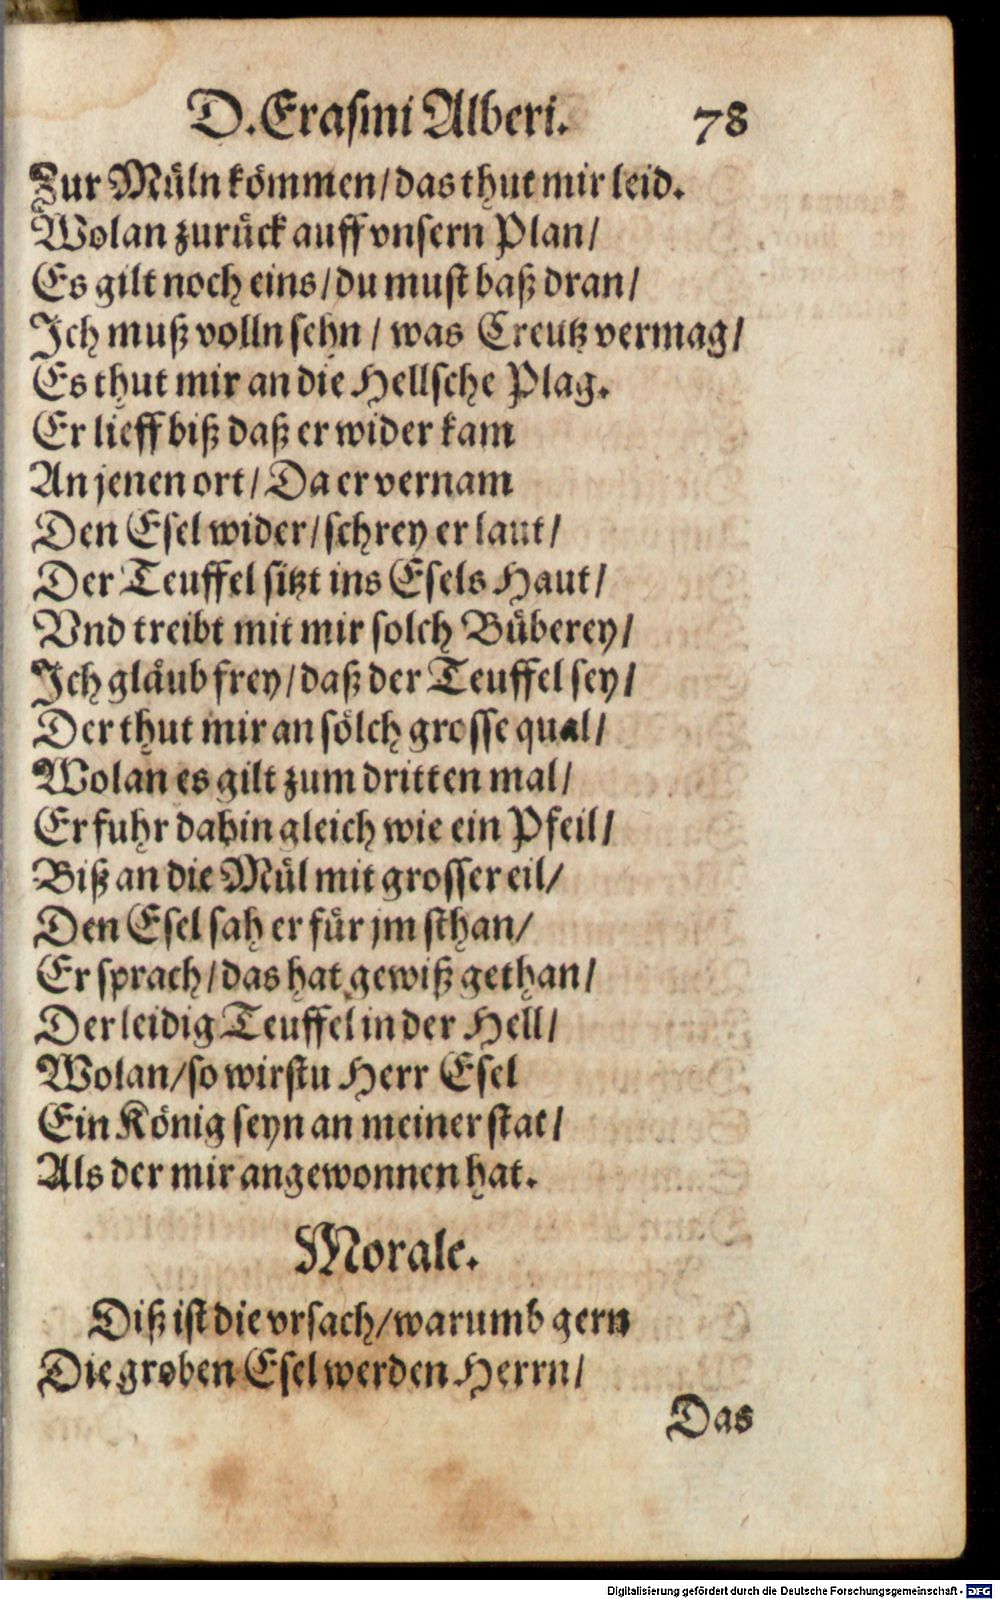 D. Erasmi Alberi. 78
Zur Müln kömmen/ das thut mir leid.
Wolan zurück auff vnsern Plan/
Es gilt noch eins/ du must baß dran/
Ich muß volln sehn/ was Creutz vermag/
Es thut mir an die Hellsche Plag.
Er lieff biß daß er wider kam
An jenen ort/ Da er vernam
Den Esel wider/ schrey er laut/
Der Teuffel sitzt ins Esels Haut/
Vnd treibt mit mir solch Büberey/
Ich gläub frey/ daß der Teuffel sey/
Der thut mir an sölch grosse qual/
Wolan es gilt zum dritten mal/
Er fuhr dahin gleich wie ein Pfeil/
Biß an die Mül mit grosser eil/
Den Esel sah er für jm sthan/
Er sprach/ das hat gewiß gethan/
Der leidig Teuffel in der Hell/
Wolan/ so wirstu Herr Esel
Ein König seyn an meiner stat/
Als der mir angewonnen hat.
Morale.
Diß ist die vrsach/ warumb gern
Die groben Esel werden Herrn/
Das
Digitalisierung gefördert durch die Deutsche Forschungsgemeinschaft - DFG